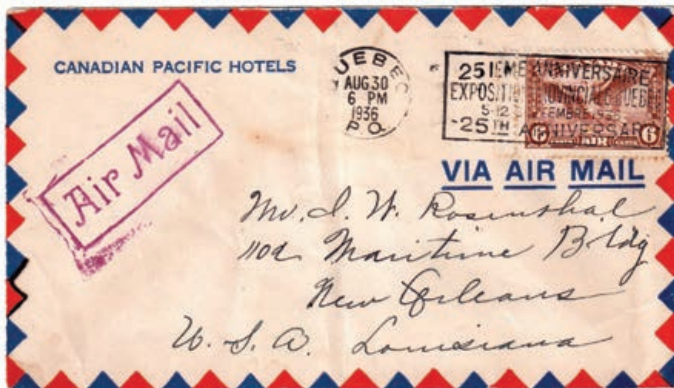 CANADIAN PACIFIC HOTELS
QUEBEC
AUG 30
6 PM
1936
P.Q.
25IEME ANNIVERSAIRE
EXPOSITION PROVINCIALE QUEBEC
5-12
25TH ANNIVERSARY
6 AIR 6
Air Mail
VIA AIR MAIL
Mr. I. W. Rosenthal
Maritime Bldg
New Orleans
U. S. A. Louisiana